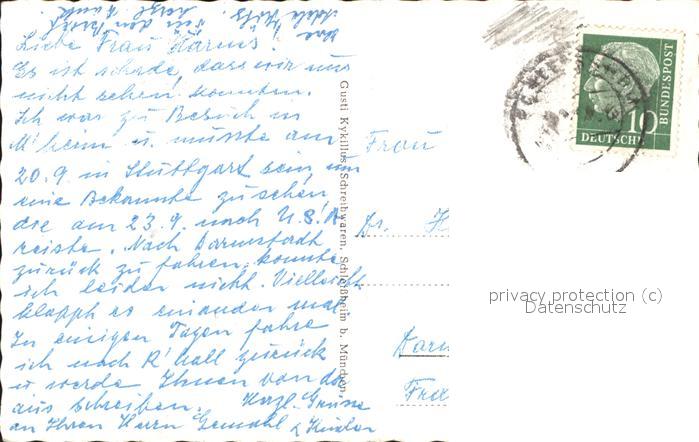 Liebe Frau Harms!
Es ist schade, dass wir uns
nicht sehen konnten.
Ich war zu Besuch in
M'heim u. musste am
20.9. in Stuttgart sein, um
eine Bekannte zu sehen,
die am 23.9. nach U.S.A
reiste. Nach Darmstadt
zurück zu fahren, konnte
ich leider nicht. Vielleicht
klappt es ein ander mal
In einigen Tagen fahre
ich nach R'hall zurück
u. werde Ihnen von dort
aus schreiben. Hrzl. Grüsse
an Ihren Herrn Gemahl & Kinder
Gusti Kykillus, Schreibwaren, Schleißheim b. München
Frau
Dr. H
Darm
DEUTSCHE
BUNDESPOST
10
privacy protection (c)
Datenschutz